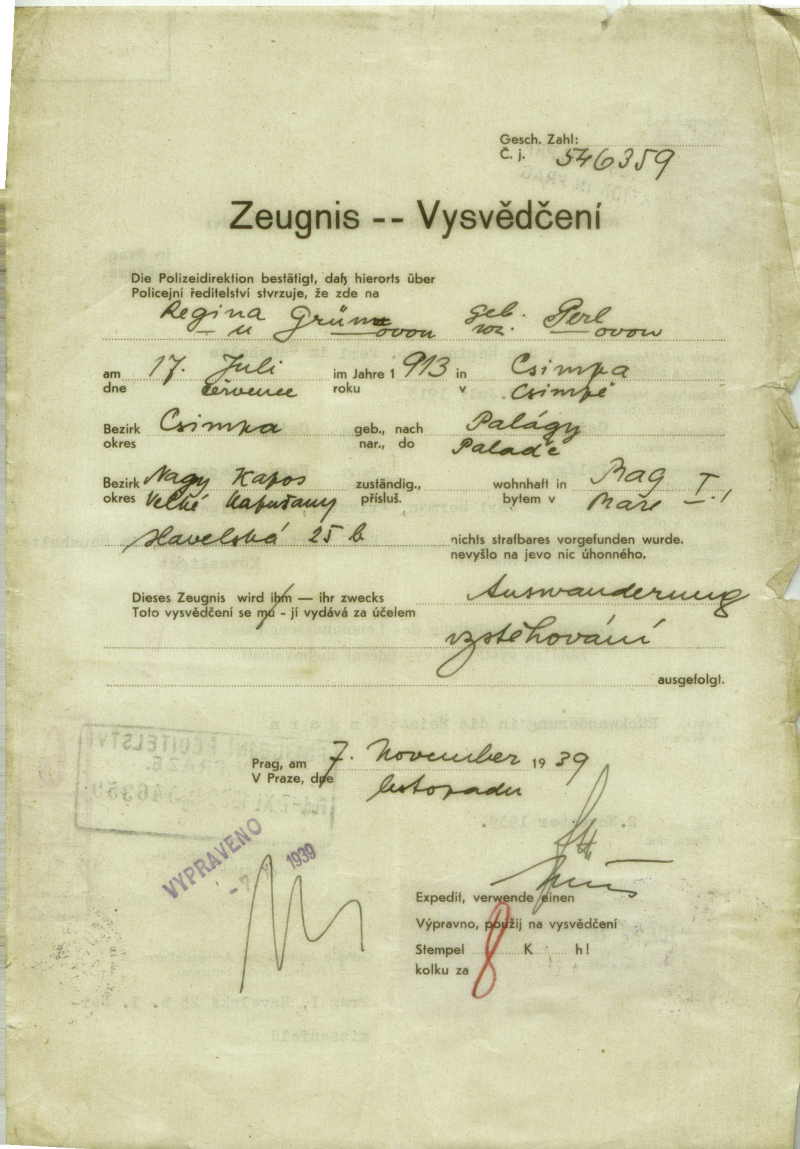 Gesch. Zahl:
Č. j. 546359
Zeugnis -- Vysvědčení
Die Polizeidirektion bestätigt, daß hierorts über
Policejní ředitelství stvrzuje, že zde na
Regina Grün geb. Perl
u ovou roz. ovou
am 17. Juli im Jahre 1 913 in Csimpa
dne července roku v Csimpě
Bezirk Csimpa geb., nach Palágy
okres nar., do Palaďe
Bezirk Nagy Kapos zuständig., wohnhaft in Prag I.,
okres Velké Kapušany přísluš. bytem v Praze
Havelská 25 b nichts strafbares vorgefunden wurde.
nevyšlo na jevo nic úhonného.
Dieses Zeugnis wird ihm — ihr zwecks Auswanderung
Toto vysvědčení se mu - jí vydává za účelem
vzstěhování
ausgefolgt.
Prag, am 7. November 19 39
V Praze, dne listopadu
VYPRAVENO
- 7. 1939
Expedit, verwende einen
Výpravno, použij na vysvědčení
Stempel 8 K h!
kolku za